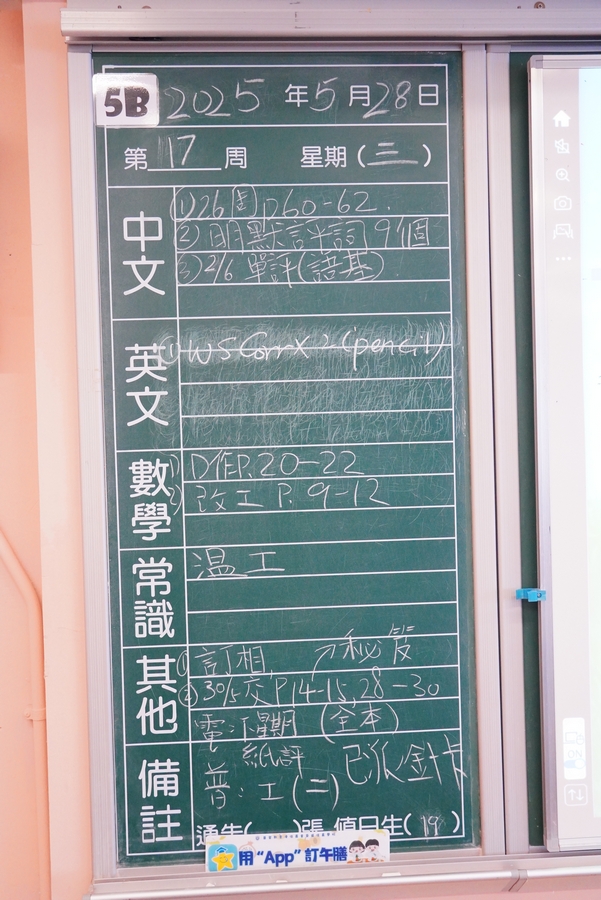 5B 2025年5月28日
第17周 星期(三)
中文
(1) 26周 p60-62.
(2) 明默評詞 9個
(3) 2/6 單評(語基)
英文
(1) WS Corrx2 (pencil)
數學
(1) D作P.20-22
(2) 改工 P.9-12
常識
溫工
其他
(1) 訂相,
(2) 30/5交P14-15,28-30
電:下星期 (全本)
備註
紙評
普:工(二)
通告( )張 值日生(19)
用“App”訂午膳